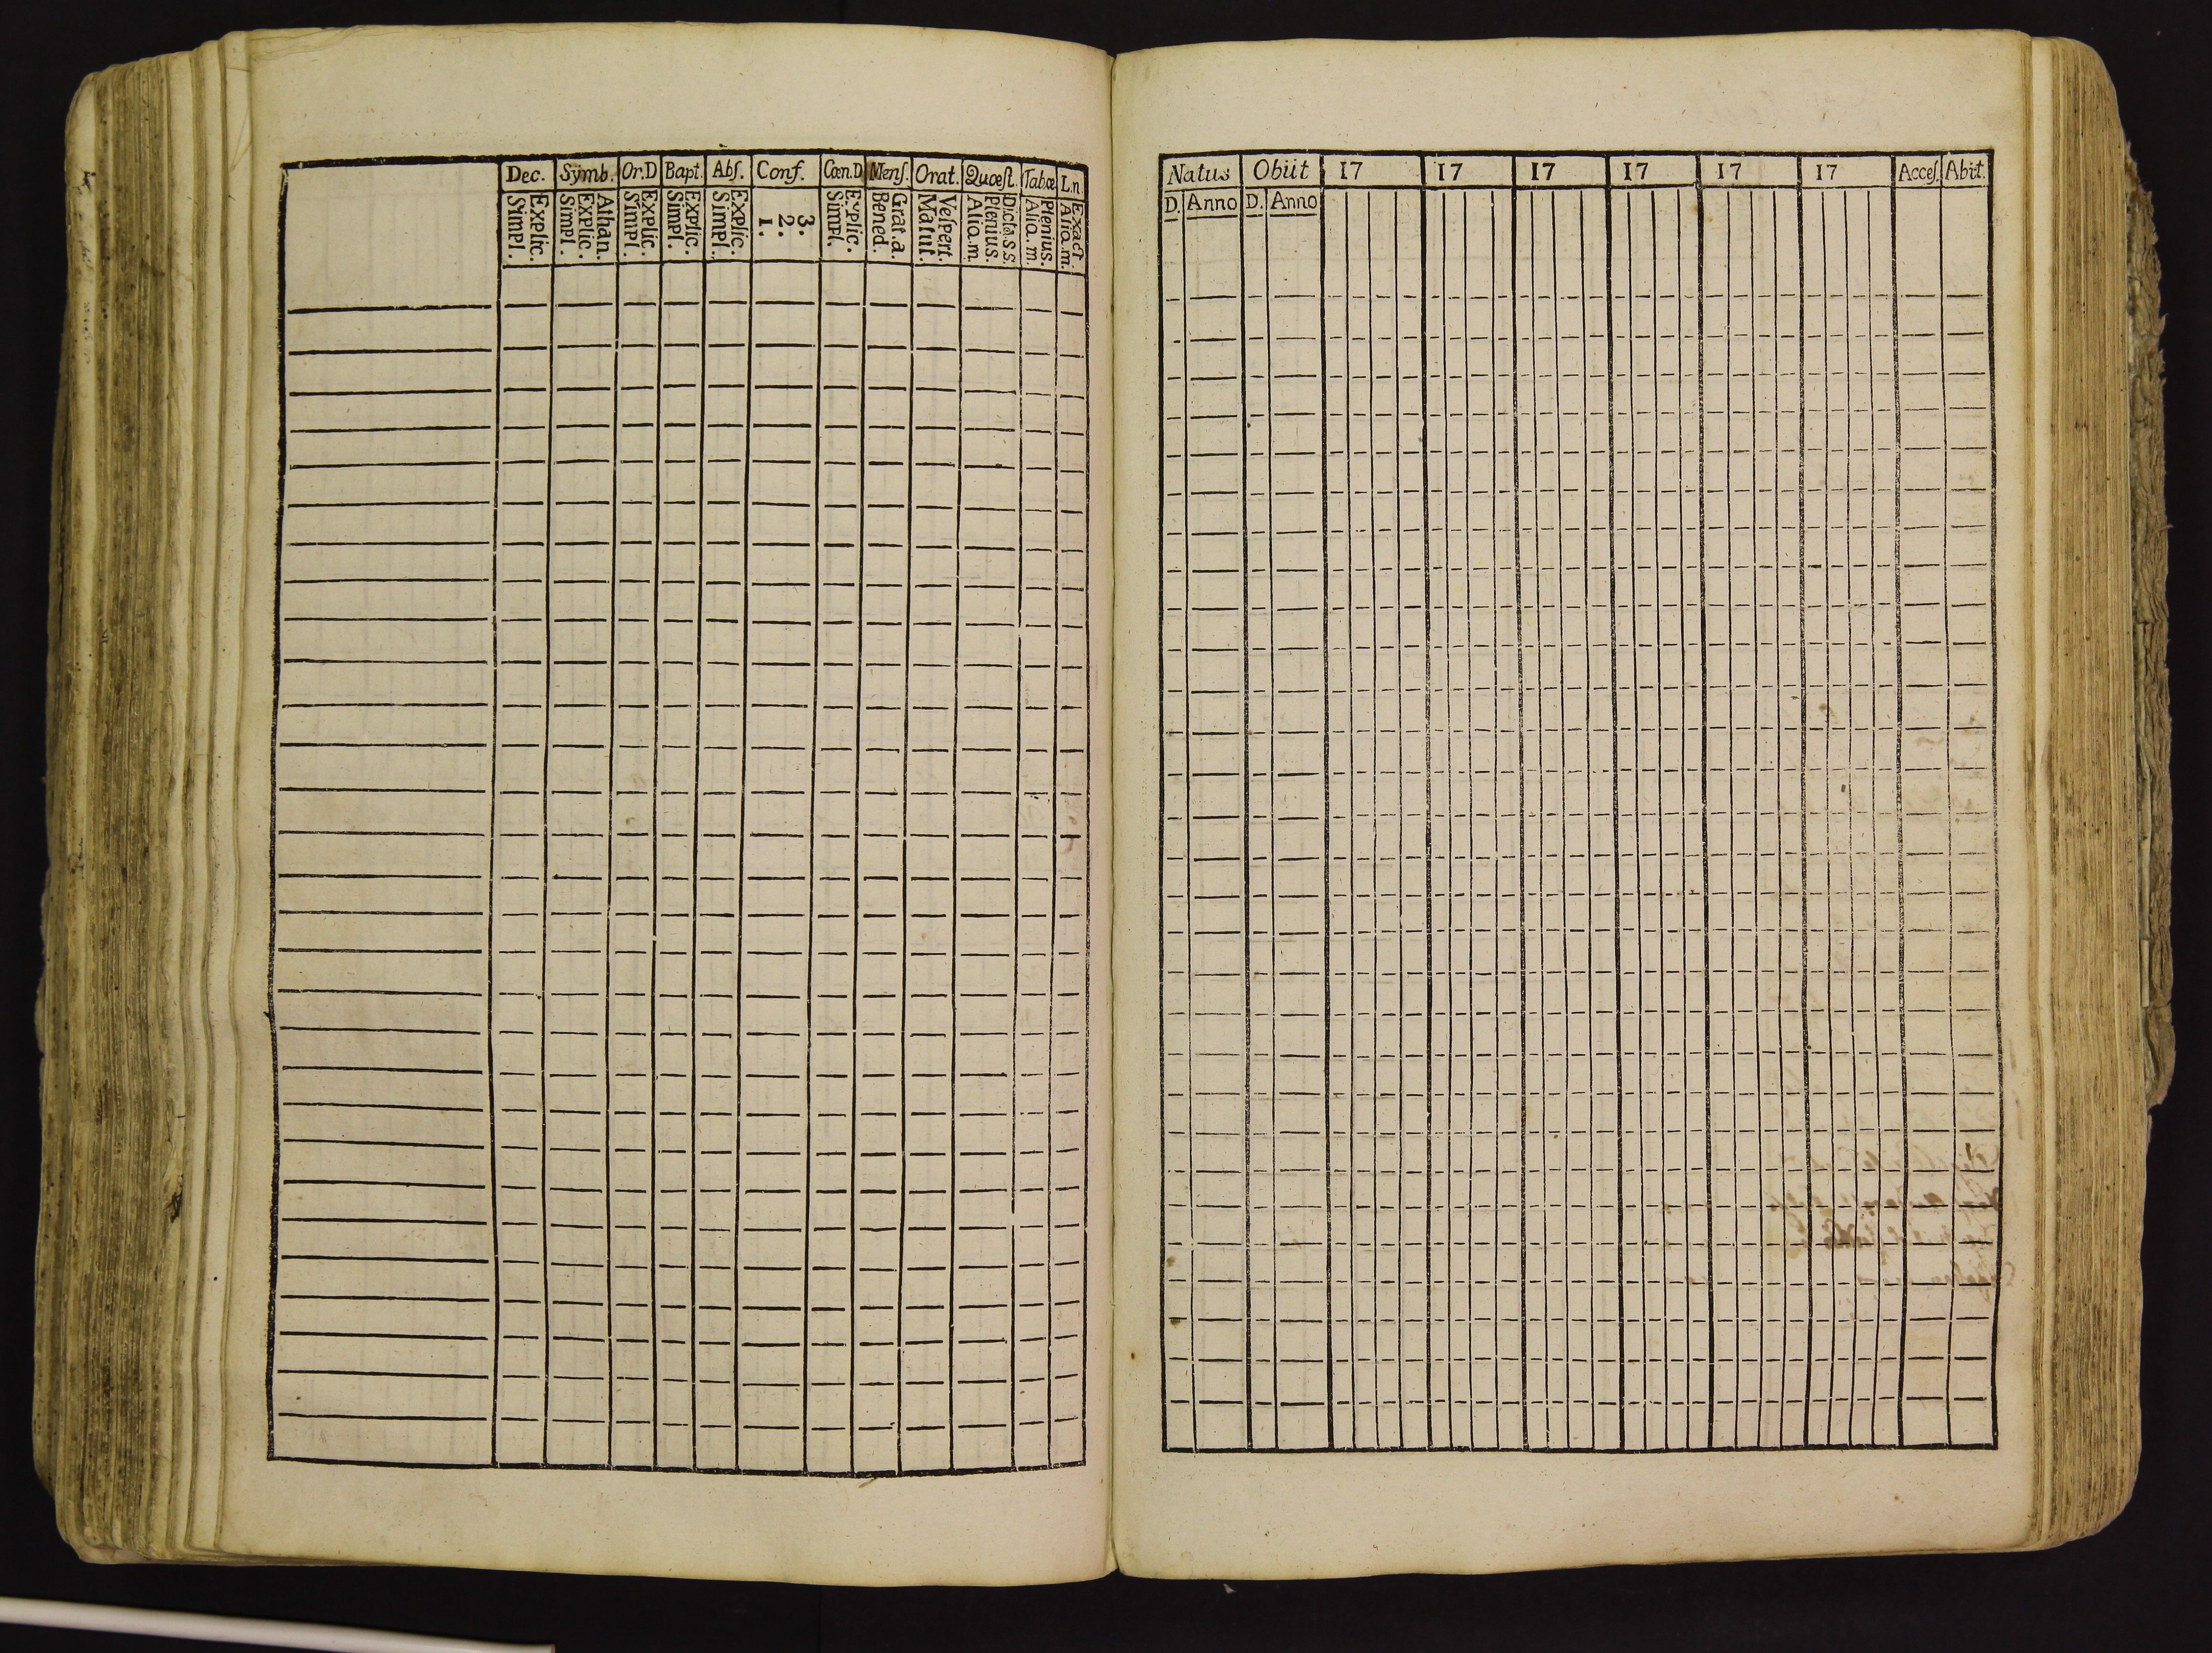 Dec. Symb. Or.D Bapt. Abſ. Conf. Cœn.D Menſ. Orat. Quæſt. Tabæ L.n
Explic. Simpl. Athan. Explic. Simpl. Explic. Simpl. Explic. Simpl. Explic. Simpl. 3. 2. 1. Explic. Simpl. Grat.a. Bened. Veſpert. Matut. Dicta.S.S. Plenius. Alio.m. Plenius. Alio.m. Exact. Alio.m.
Natus Obiit 17 17 17 17 17 17 Acceſ. Abit.
D. Anno D. Anno